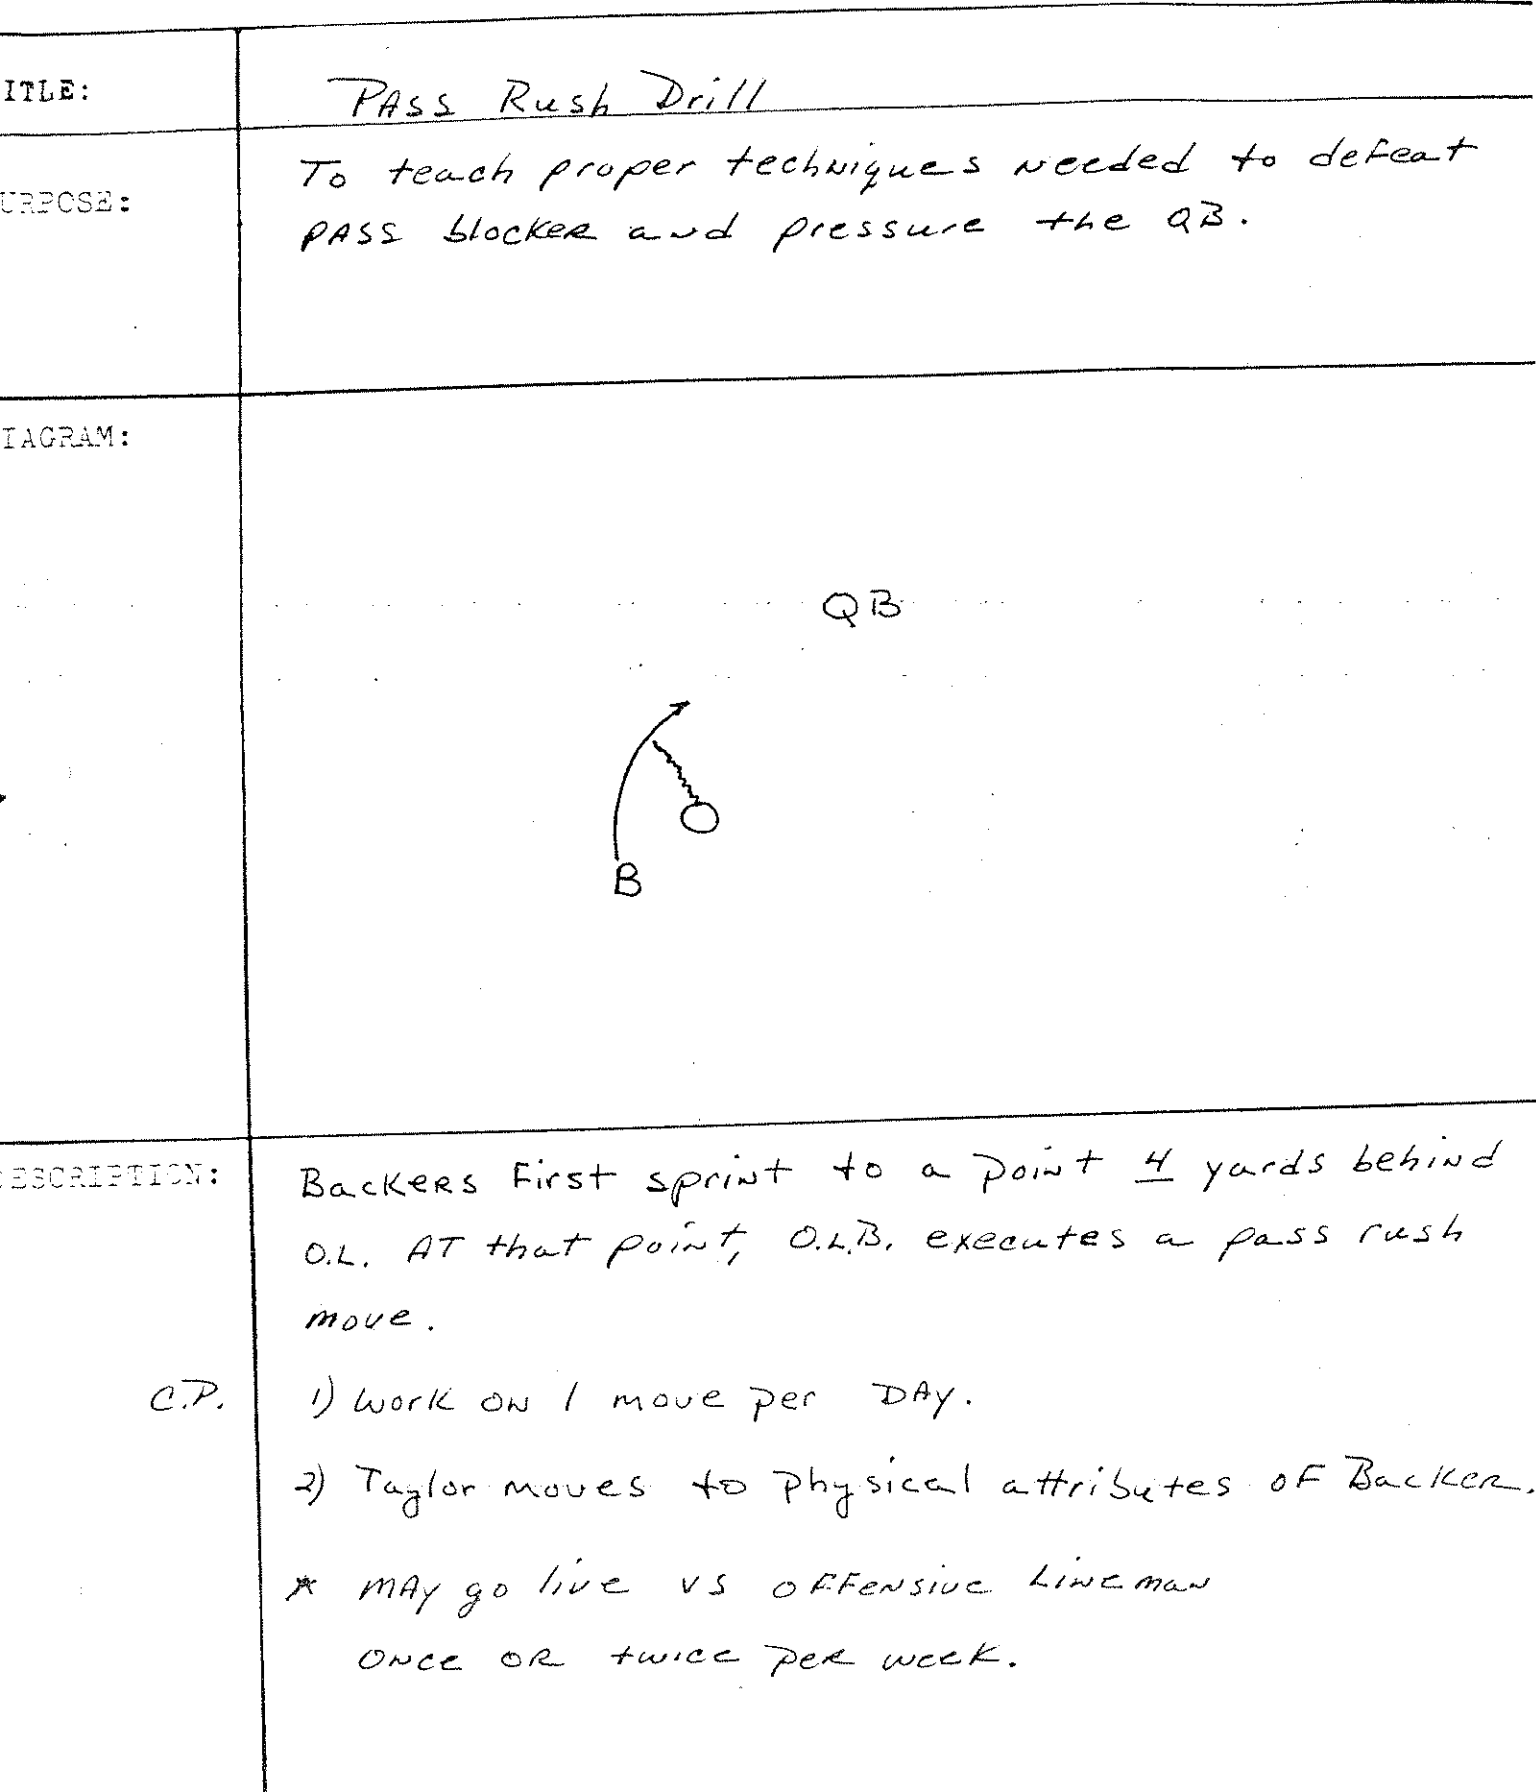 ITLE: PASS Rush Drill
URPOSE: To teach proper techniques needed to defeat
PASS blocker and pressure the QB.
IAGRAM:
QB
B
DESCRIPTION: Backers First sprint to a point 4 yards behind
O.L. AT that point, O.L.B. executes a pass rush
move.
C.P. 1) Work on 1 move per DAy.
2) Taylor moves to physical attributes of Backer.
* MAy go live vs offensive Lineman
once or twice per week.